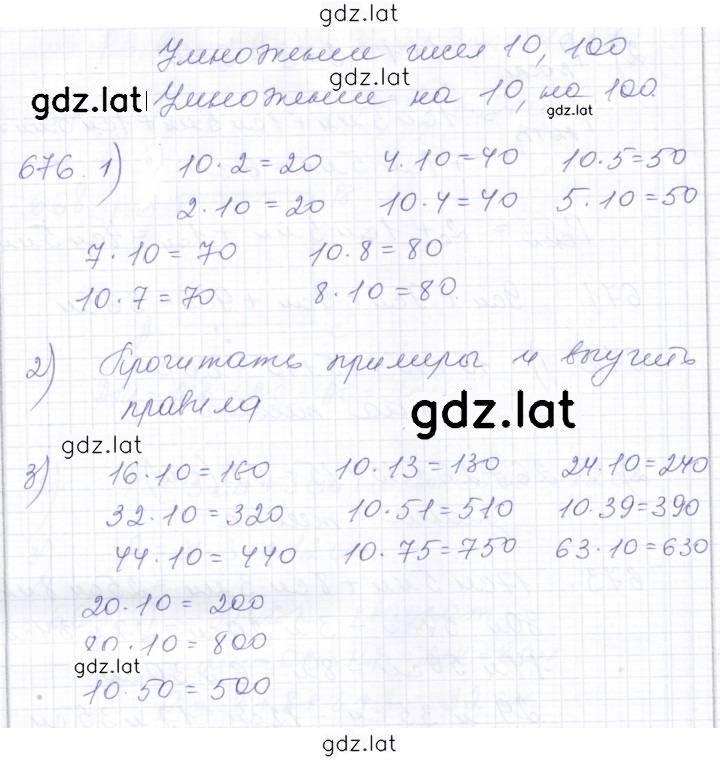 gdz.lat
Умножение чисел 10, 100
gdz.lat
gdz.lat Умножение на 10, на 100
gdz.lat
676. 1) 10·2=20 4·10=40 10·5=50
2·10=20 10·4=40 5·10=50
7·10=70 10·8=80
10·7=70 8·10=80
2) Прочитать примеры и выучить
правила
gdz.lat
gdz.lat
3) 16·10=160 10·13=130 24·10=240
32·10=320 10·51=510 10·39=390
44·10=440 10·75=750 63·10=630
20·10=200
80·10=800
gdz.lat
10·50=500
gdz.lat